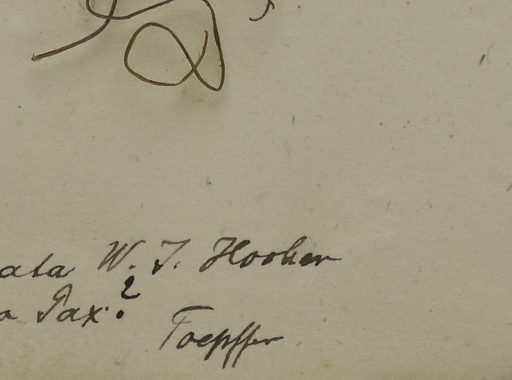 ata W. J. Hooker
a Pax.?
Toepffer